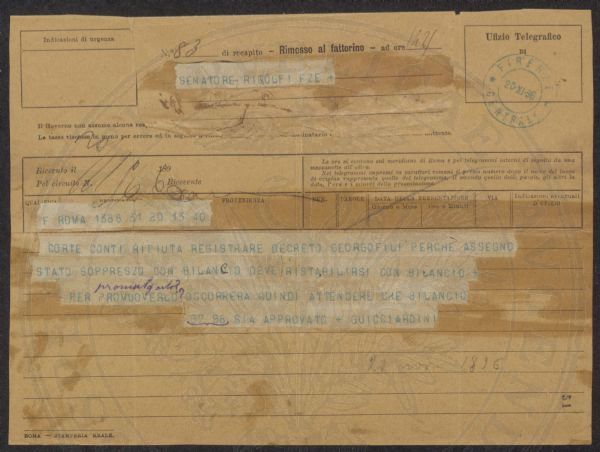 Indicazioni di urgenza
N.° 83 di recapito - Rimesso al fattorino - ad ore
Uffizio Telegrafico
DI
FIRENZE
CENTRALE
SENATORE RIDOLFI FZE +
Il Governo non assume alcuna
La tassa riscossa in meno per errore ed in seguito
Ricevuto il 189
Pel circuito N. Ricevente
Le ore si contano sul meridiano di Roma e pei telegrammi interni di seguito da una mezzanotte all'altra.
Nei telegrammi impressi in caratteri romani il primo numero dopo il nome del luogo di origine rappresenta quello del telegramma, il secondo quello delle parole, gli altri la data, l'ora e i minuti della presentazione.
QUALIFICA PROVENIENZA NUM. PAROLE DATA DELLA PRESENTAZIONE VIA INDICAZIONI EVENTUALI D'UFFICIO
Giorno e Mese Ore e Minuti
F ROMA 1386 31 20 13 40
CORTE CONTI RIFIUTA REGISTRARE DECRETO GEORGOFILI PERCHÈ ASSEGNO
STATO SOPPRESZO CON BILANCIO DEVE RISTABILIRSI CON BILANCIO +
PER PROMUOVERLO? OCCORRERA QUINDI ATTENDERE CHE BILANCIO
97 96 SIA APPROVATO + GUICCIARDINI
1896
ROMA — STAMPERIA REALE.